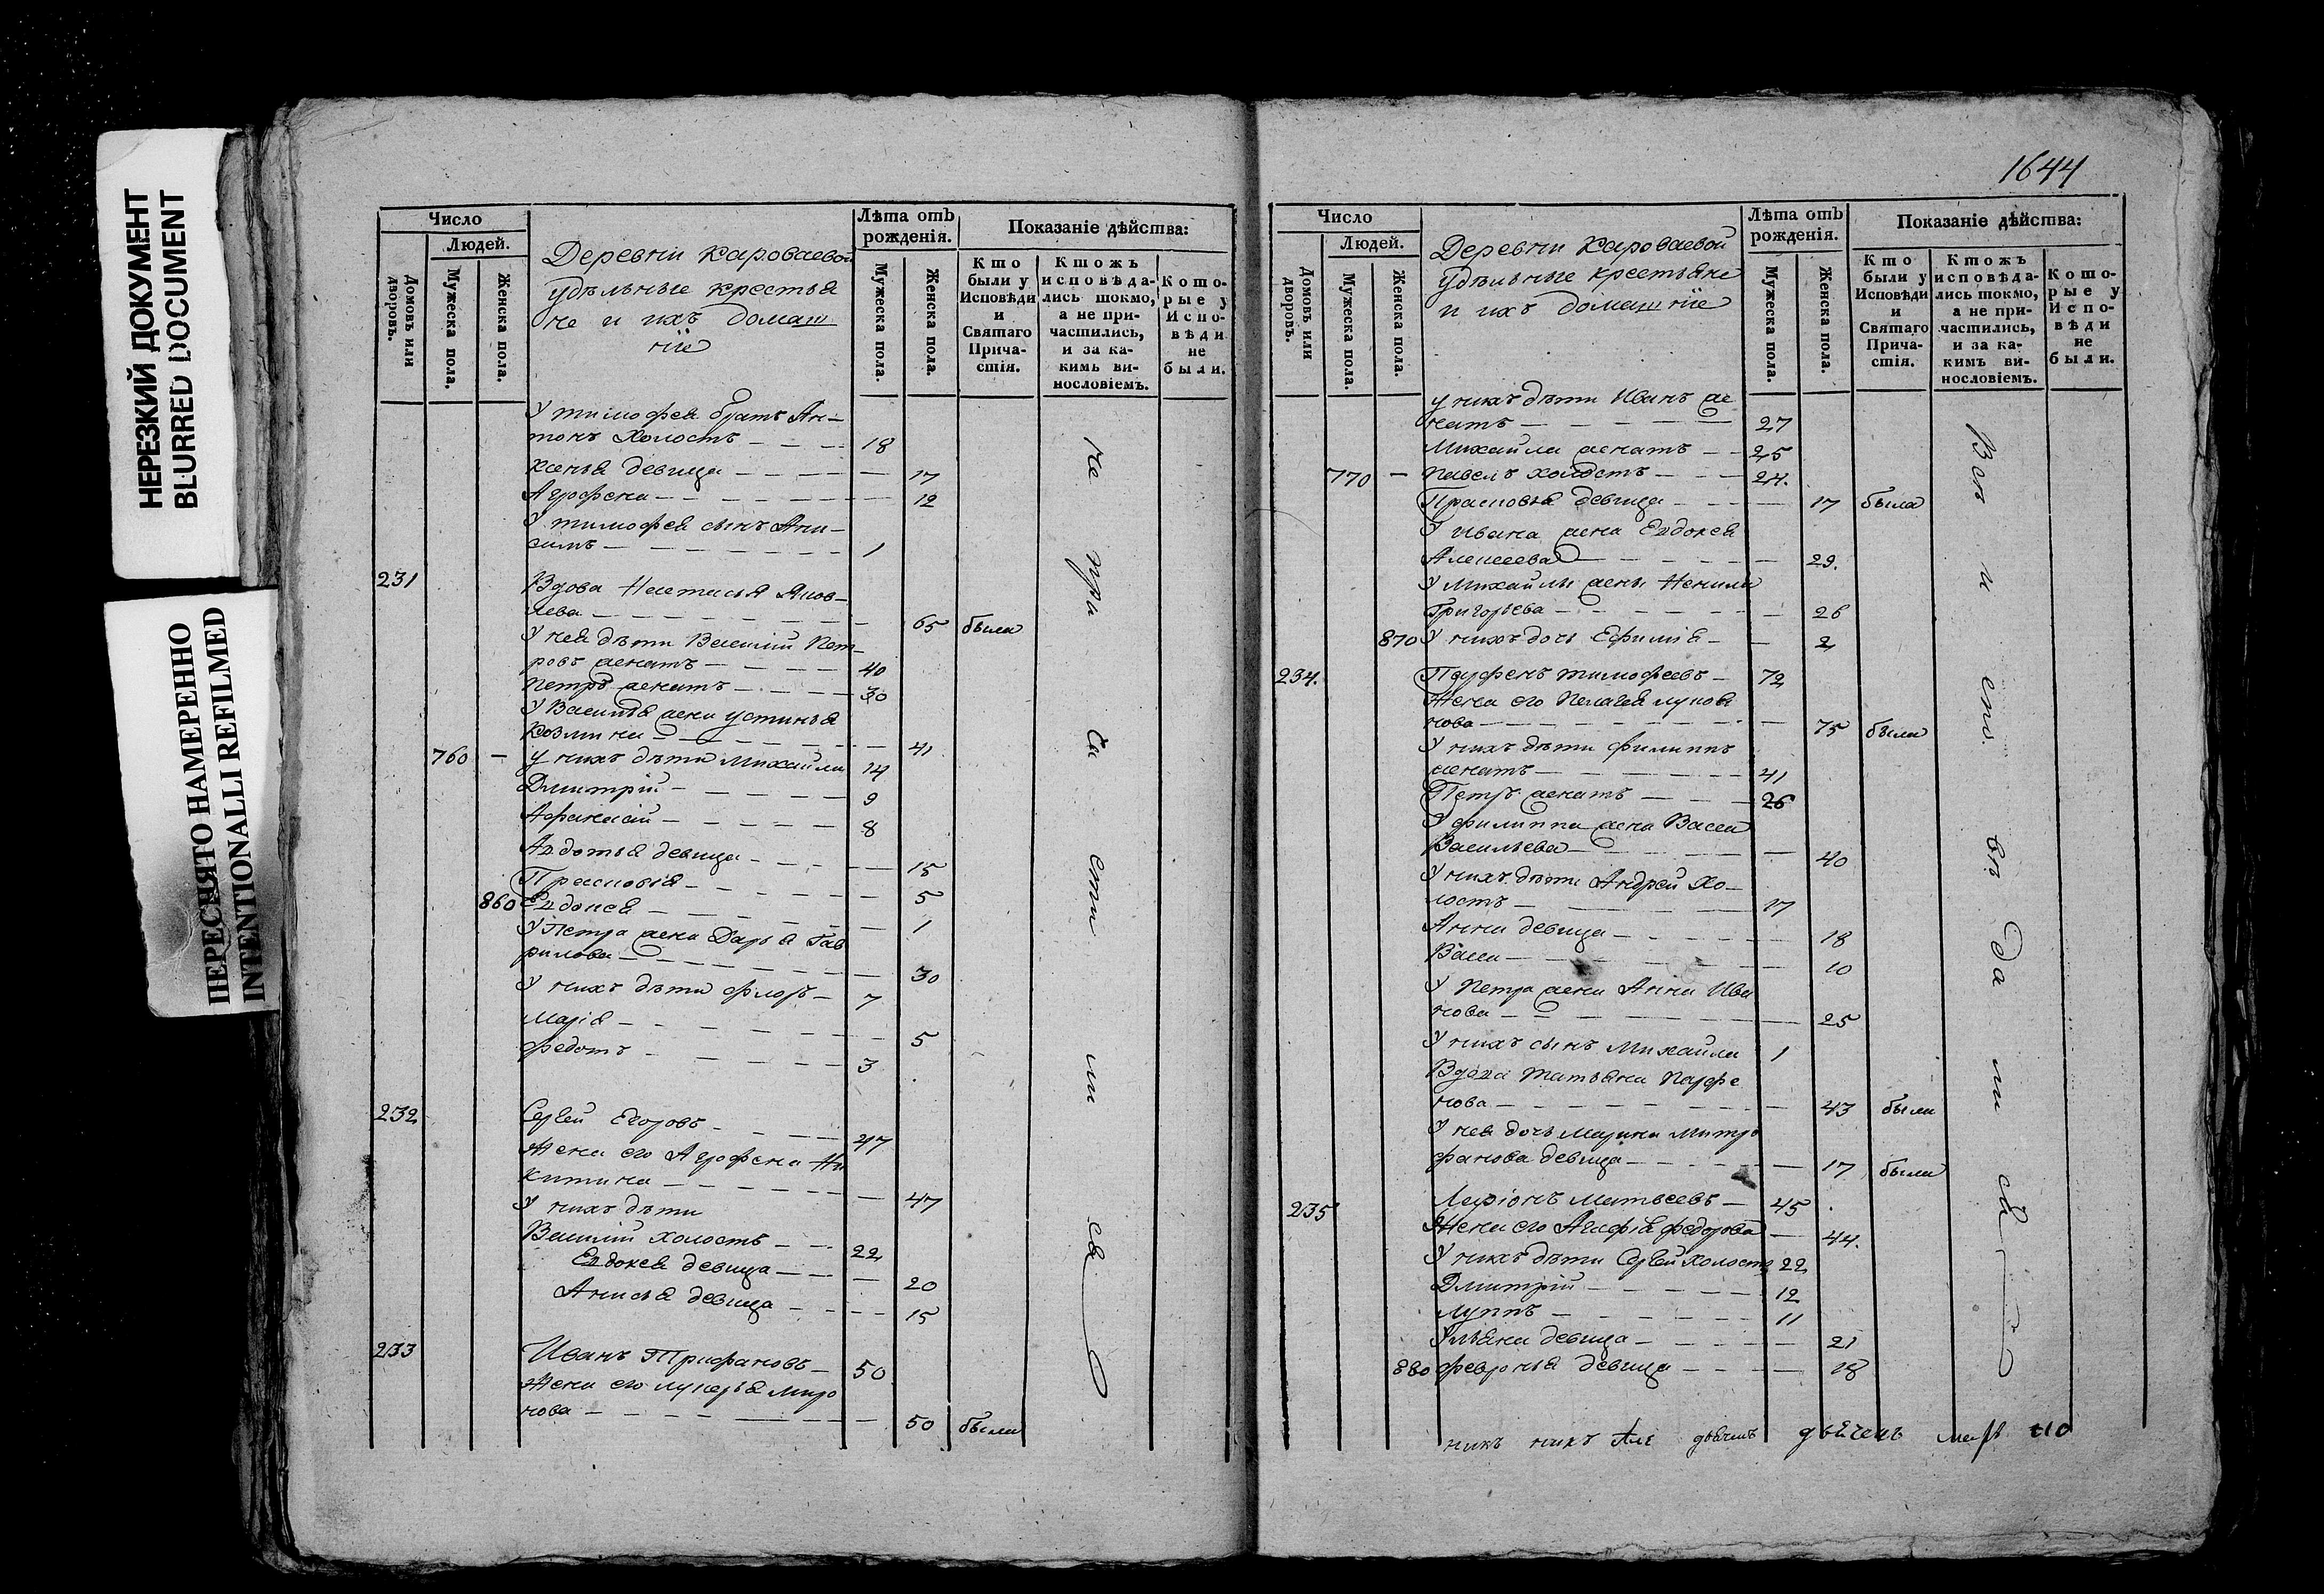 НЕРЕЗКИЙ ДОКУМЕНТ
BLURRED DOCUMENT
ПЕРЕСНЯТО НАМЕРЕННО
INTENTIONALLI REFILMED
Число
Людей.
Домовъ или дворовъ.
Мужеска пола.
Женска пола.
Деревни Кароваевой
Удѣльные крестья
не и ихъ домаш
ніе
Лѣта отъ рожденія.
Мужеска пола.
Женска пола.
Показаніе дѣйства:
Кто были у Исповѣди и Святаго Прича- стія.
Ктожъ исповѣда- лись токмо, а не при- частились, и за ка- кимъ ви- нословіемъ.
Кото- рые у Испо- вѣди не были.
У тимофея братъ Ан-
тонъ Холостъ 18
Ксенья девица 17
Агрофена 12
У тимофея сынъ Ани-
симъ 1
231 Вдова Настасья Яков-
лева 65 была
У нея дѣти Василій Пет-
ровъ женатъ 40
Петръ женатъ 30
У Василья жена устинья
Козмина 41
760 — у нихъ дѣти Михайла 14
Дмитрій 9
Афанасій 8
Авдотья девица 15
Прасковія 5
860 Евдокея 1
У Петра жена Дарья Гав
рилова 30
У нихъ дѣти флоръ 7
Марія 5
федотъ 3
232 Сергей Егоровъ 47
Жена его Агрофена Ни
китина 47
У нихъ дѣти
Василій холостъ 22
Евдокея девица 20
Анисья девица 15
233 Иванъ Трифановъ 50
Жена его лукерья миро
нова 50 была
не при ча сти ли ся
1644
Число
Людей.
Домовъ или дворовъ.
Мужеска пола.
Женска пола.
Деревни Кароваевой
Удѣльные крестьяне
и ихъ домашніе
Лѣта отъ рожденія.
Мужеска пола.
Женска пола.
Показаніе дѣйства:
Кто были у Исповѣди и Святаго Прича- стія.
Ктожъ исповѣда- лись токмо, а не при- частились, и за ка- кимъ ви- нословіемъ.
Кото- рые у Испо- вѣди не были.
у нихъ дѣти Иванъ же
натъ 27
Михайла женатъ 25
770 — Павелъ холостъ 24.
Прасковья девица 17 была
У Ивана жена Евдокея
Алексеева 29.
У Михайлы жена Ненила
Григорьева 26
870 У нихъ дочь Ефимія 2
234. Парфенъ тимофеевъ 72
Жена его Пелагея лукоя
нова 75 была
У нихъ дѣти филиппъ
женатъ 41
Петръ женатъ 26
У филиппа жена Васса
Васильева 40
У нихъ дѣти Андрей Хо-
лостъ 17
Анна девица 18
Васса 10
У Петра жена Анна Ива
нова 25
У нихъ сынъ Михайла 1
Вдова татьяна Парфе
нова 43 была
У нея дочь Марина Митро
фанова девица 17 была
235 Ларіонъ Матвеевъ 45
Жена его Агафія федорова 44.
У нихъ дѣти Сергей холостъ 22
Дмитрій 12
луппъ 11
Ульяна девица 21
880 февронья девица 18
Вси и спо вѣ да ли ся